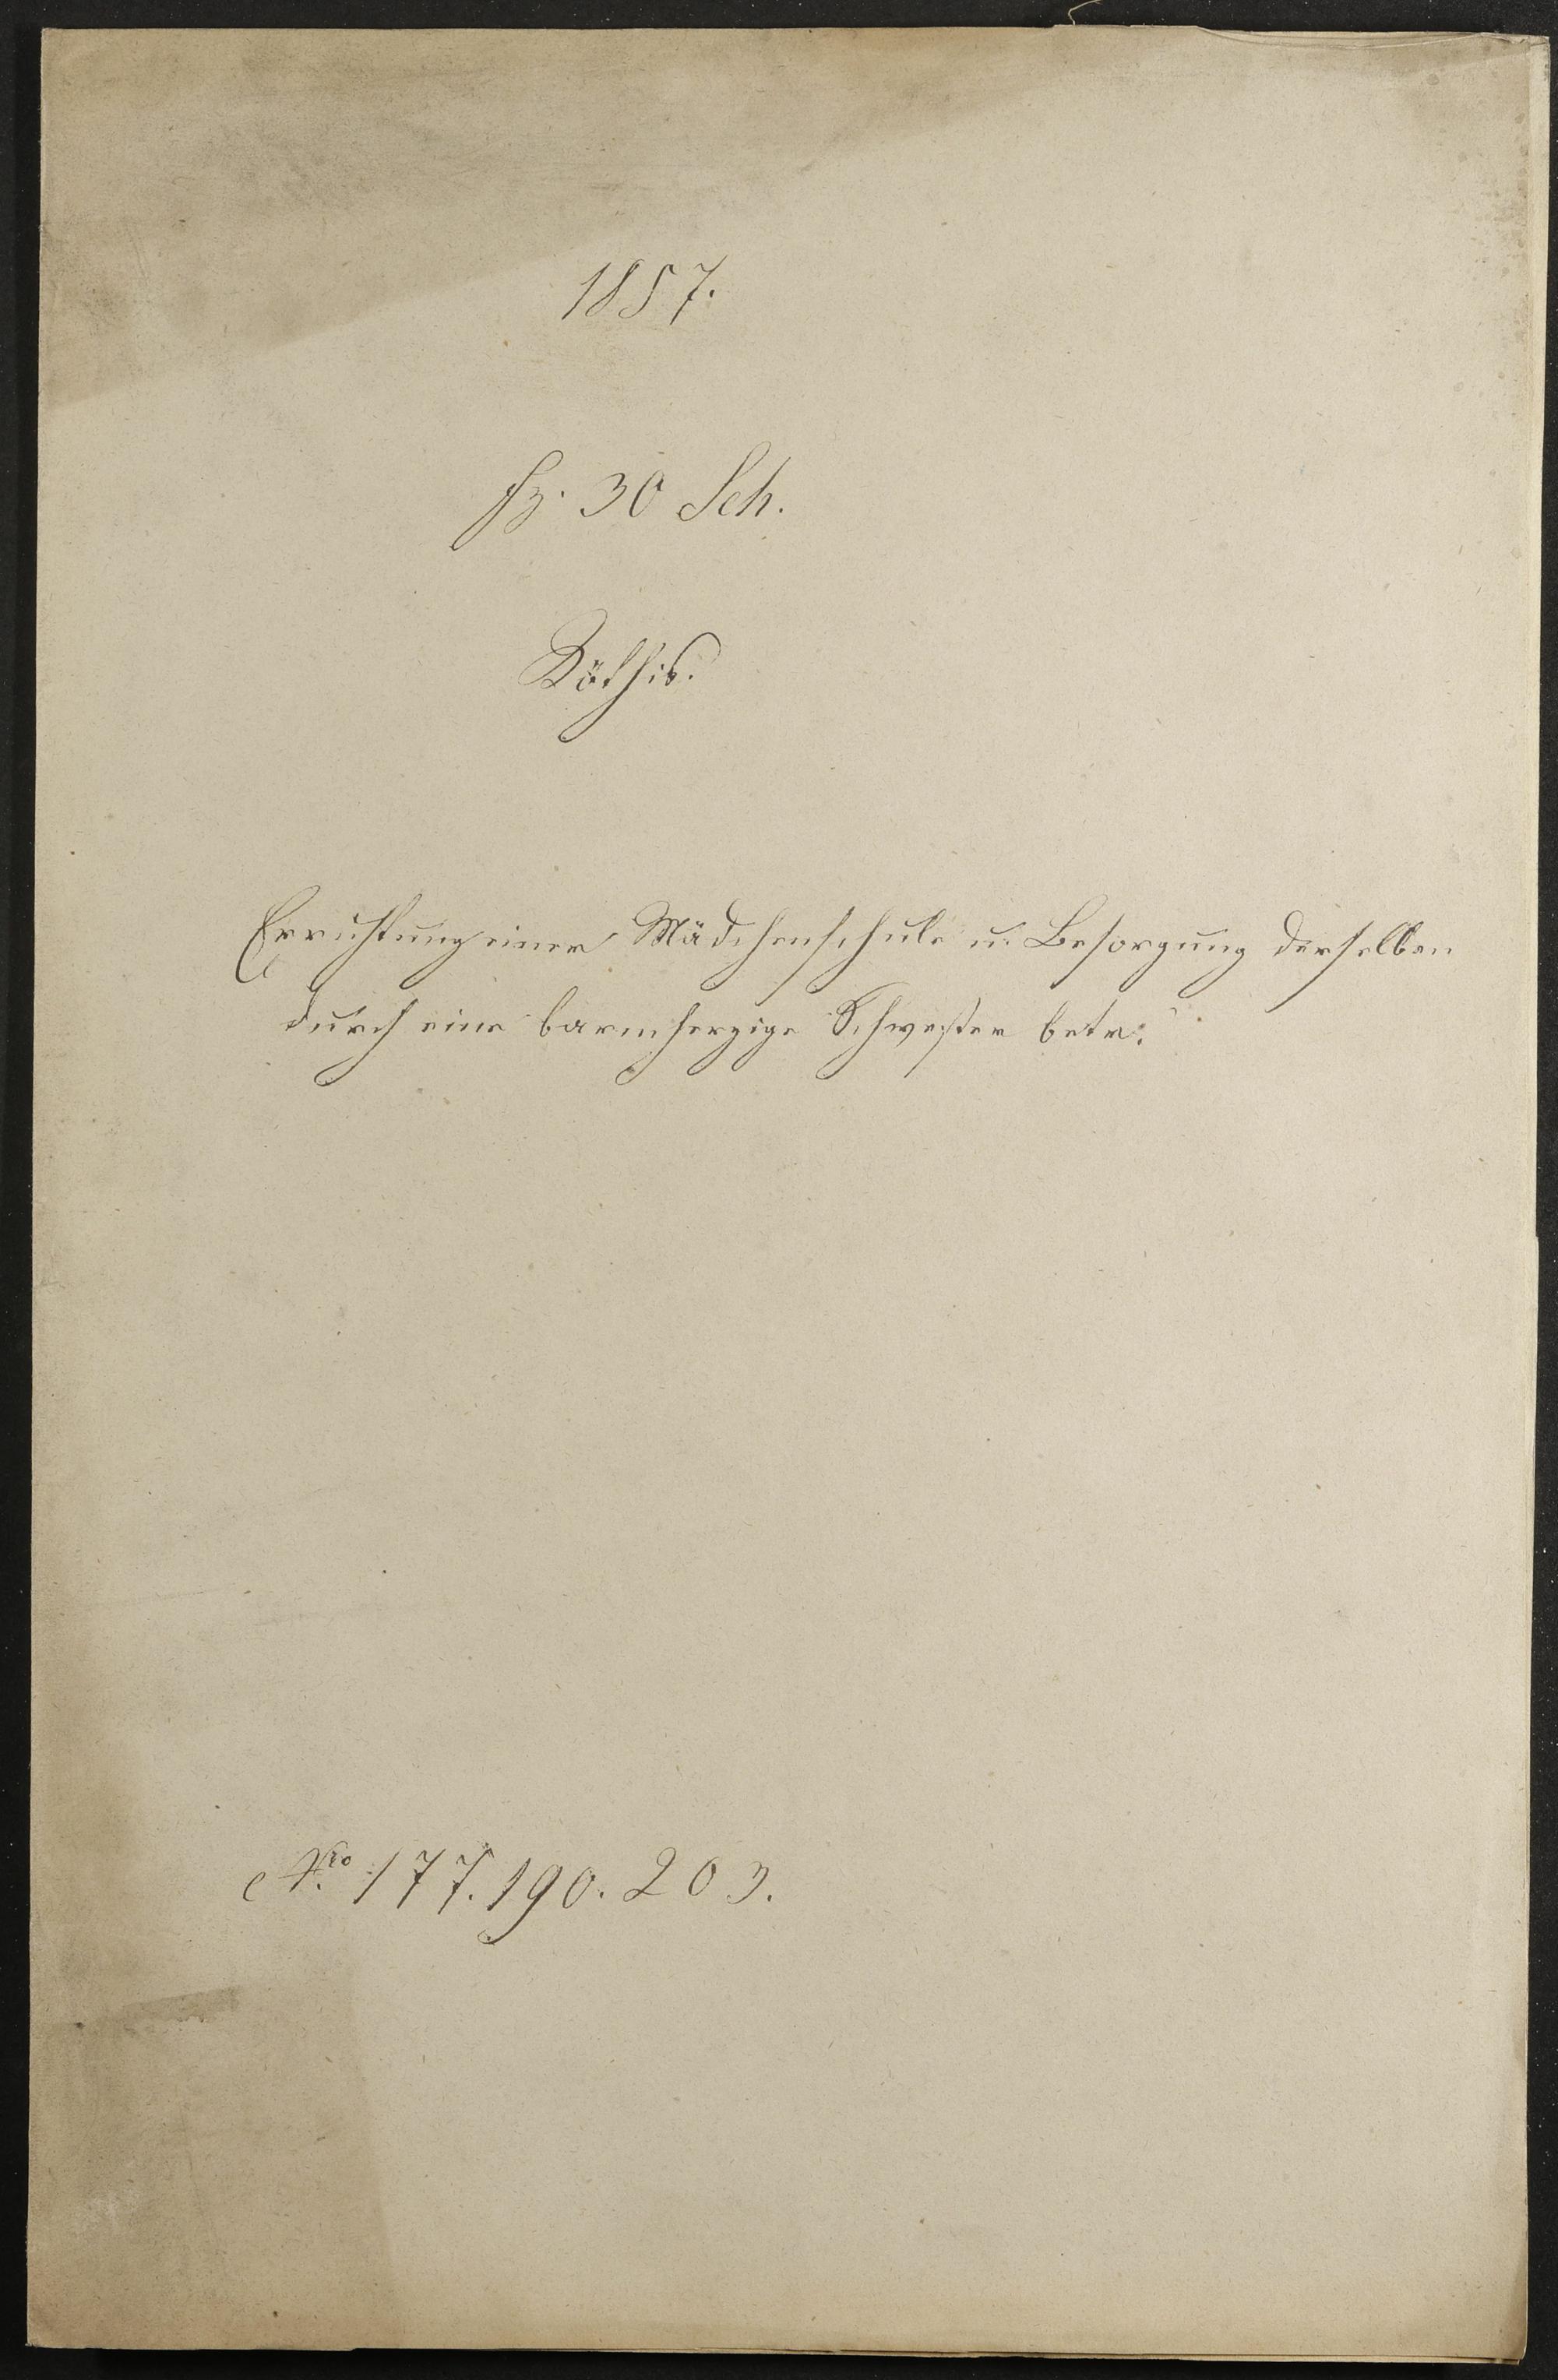 1857.
Fz. 30 Sch.
Röthis.
Errichtung einer Mädchenschule u. Besorgung derselben
durch eine barmherzige Schwester betr.
Nro 177. 190. 203.